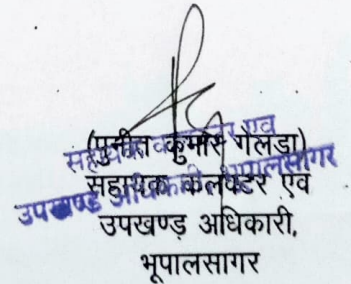 (पुनीत कुमार गेलड़ा)
सहायक कलेक्टर एवं
उपखण्ड़ अधिकारी,
भूपालसागर
सहायक कलेक्टर एवं
उपखण्ड अधिकारी भूपालसागर